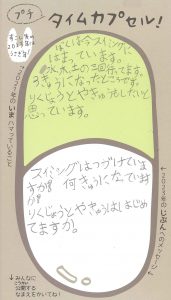 プチ
タイムカプセル!
すこし先の
2023年は
うさぎ年!
2022年のいまハマっていること
ぼくは今スイミングに
はまっています。
水木土の三回行ってます。
3きゅうになったところです。
りくじょうとやきゅうもしたいと
思っています。
2023年のじぶんへのメッセージ
スイミングはつづけていま
すか?何きゅうになっています
か?
りくじょうとややきゅうははじめ
てますか。
みんなに
こうかい
公開する
なまえをかいてね!